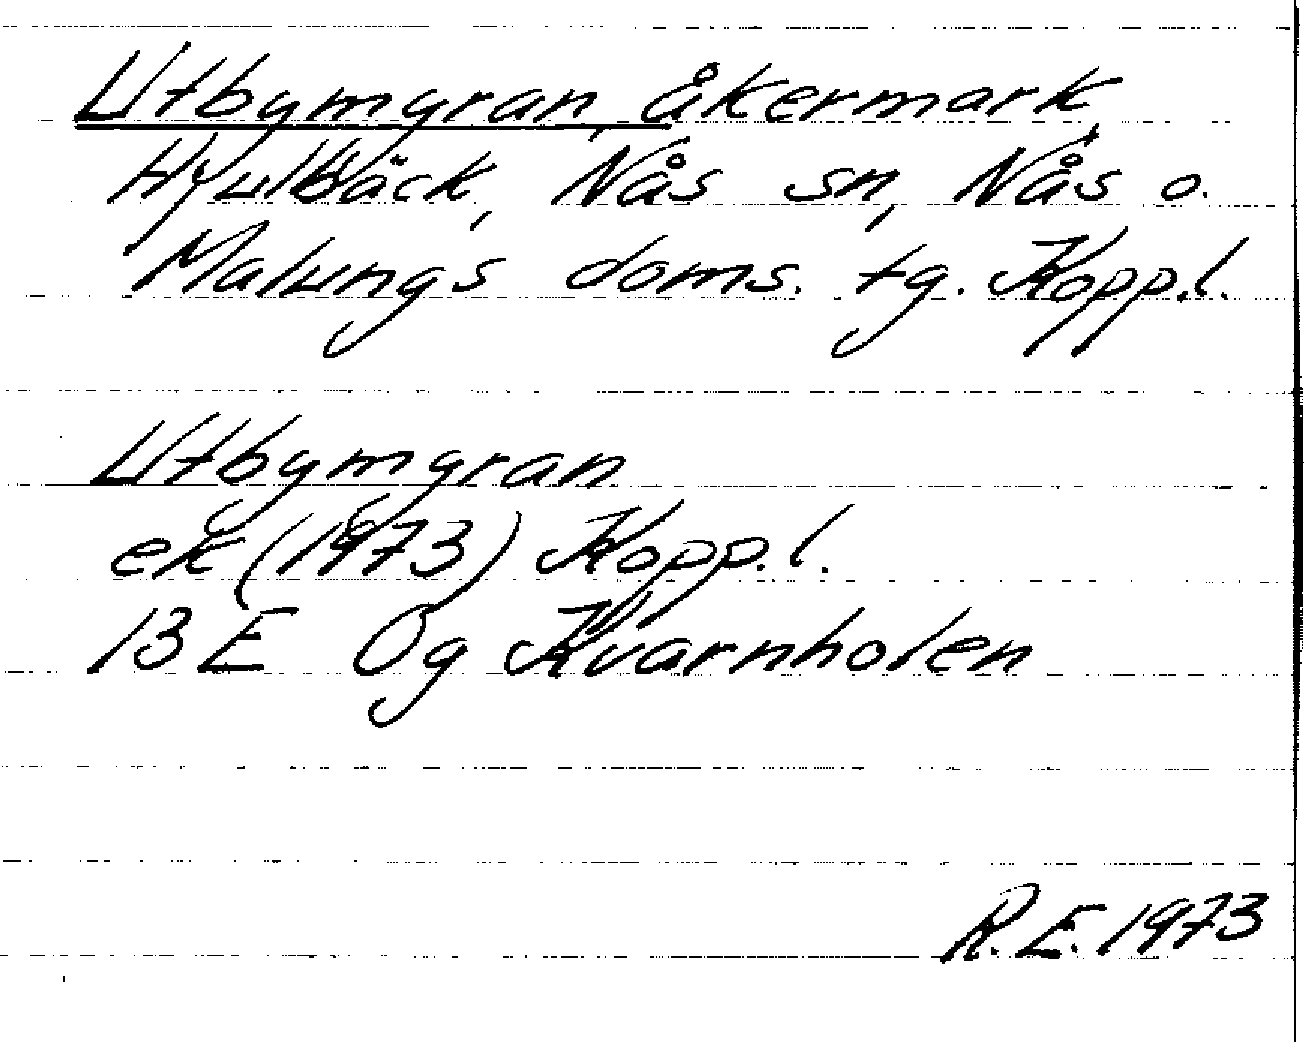 Utbymyran, åkermark,
Hjulbäck, Nås sn, Nås o.
Malungs doms. tg. Kopp.l.
Utbymyran
ek (1973) Kopp.l.
13 E 0g Kvarnholen
R.E. 1973